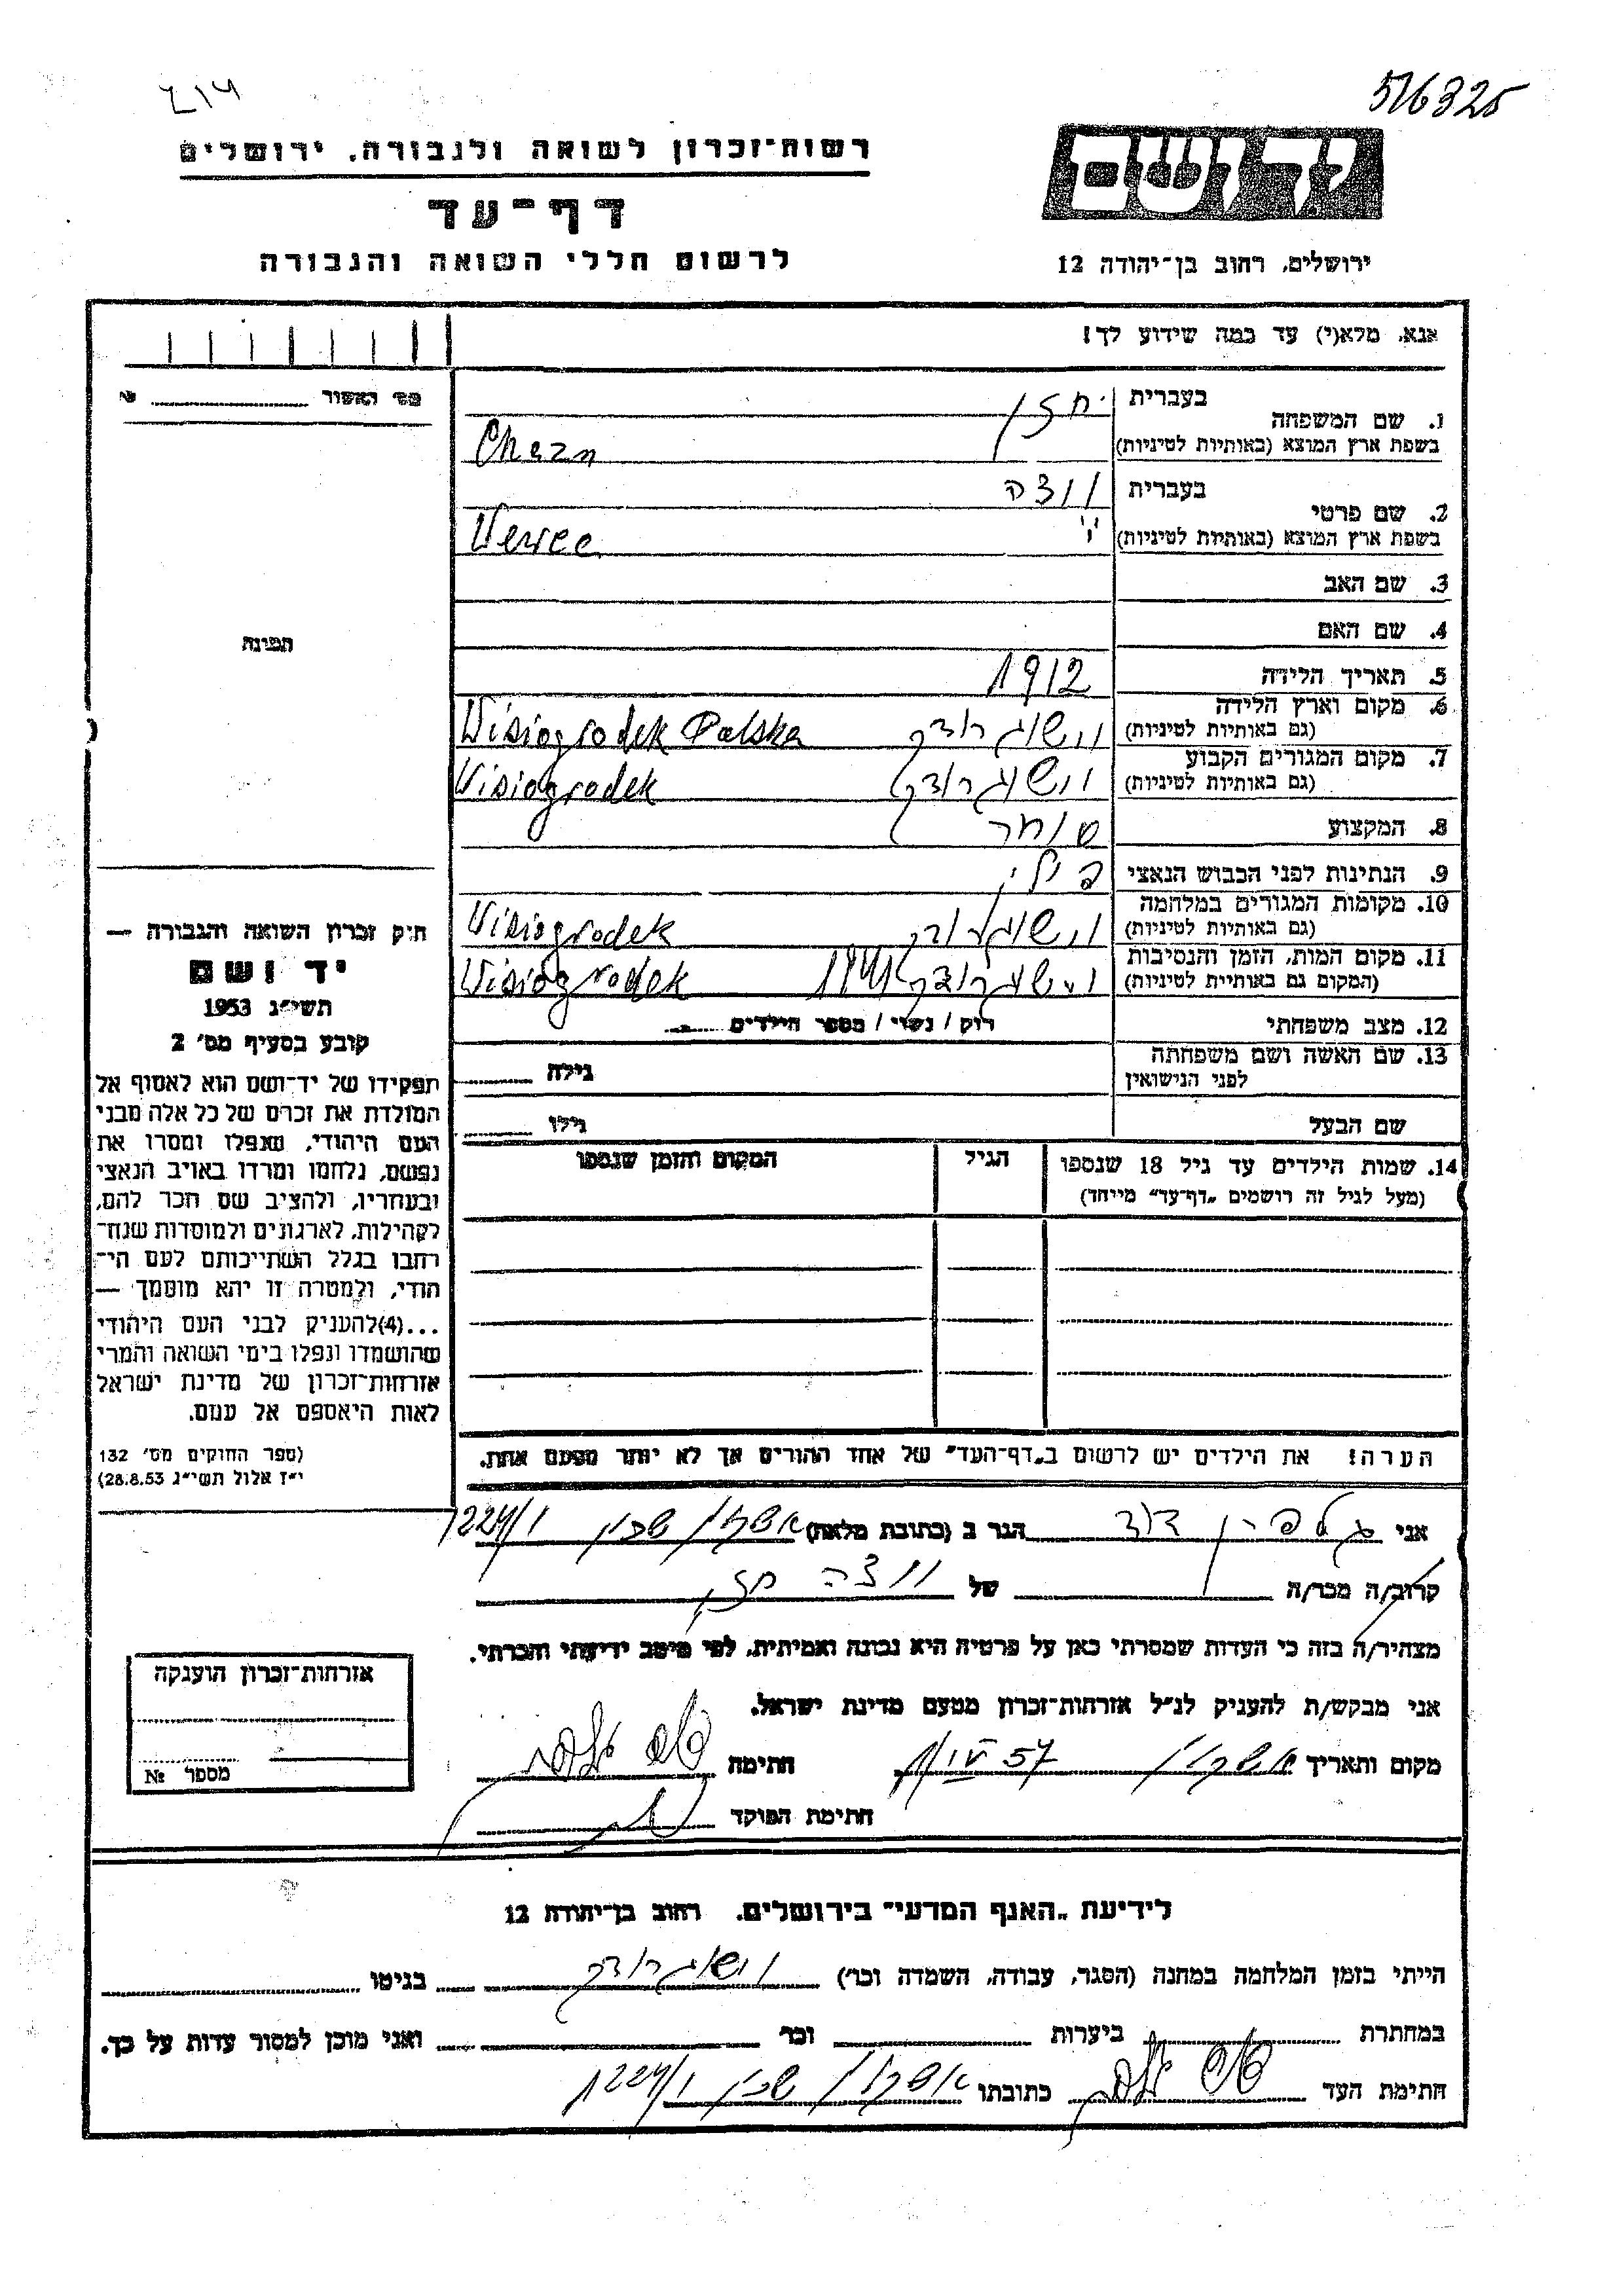 516325
רשות־זכרון לשואה ולגבורה, ירושלים
דף־עד
לרשום חללי השואה והגבורה
יד ושם
ירושלים, רחוב בן־יהודה 12
אנא, מלא(י) עד כמה שידוע לך!
מס׳ האשור
1. שם המשפחה
בעברית חזן
בשפת ארץ המוצא (באותיות לטיניות) Chazn
2. שם פרטי
בעברית ווצה
בשפת ארץ המוצא (באותיות לטיניות)
3. שם האב
4. שם האם
5. תאריך הלידה 1912
6. מקום וארץ הלידה
(גם באותיות לטיניות) ווישוגרודק Wisiogrodek Polska
7. מקום המגורים הקבוע
(גם באותיות לטיניות) ווישוגרודק Wisiogrodek
8. המקצוע סוחר
9. הנתינות לפני הכבוש הנאצי פולני
10. מקומות המגורים במלחמה
(גם באותיות לטיניות) ווישוגרודק Wisiogrodek
11. מקום המות, הזמן והנסיבות
(המקום גם באותיות לטיניות) ווישוגרודק 1941 Wisiogrodek
12. מצב משפחתי רוק / נשוי / מספר הילדים
13. שם האשה ושם משפחתה
לפני הנישואין גילה
שם הבעל גילו
14. שמות הילדים עד גיל 18 שנספו
(מעל לגיל זה רושמים „דף־עד” מייחד)
הגיל
המקום והזמן שנספו
הערה! את הילדים יש לרשום ב„דף־העד” של אחד ההורים אך לא יותר מפעם אחת.
תמונה
חוק זכרון השואה והגבורה —
יד ושם
תשי״ג 1953
קובע בסעיף מס׳ 2
תפקידו של יד־ושם הוא לאסוף אל
המולדת את זכרם של כל אלה מבני
העם היהודי, שנפלו ומסרו את
נפשם, נלחמו ומרדו באויב הנאצי
ובעוזריו, ולהציב שם וזכר להם,
לקהילות, לארגונים ולמוסדות שנח־
רבו בגלל השתייכותם לעם הי־
הודי, ולמטרה זו יהא מוסמך —
...(4)להעניק לבני העם היהודי
שהושמדו ונפלו בימי השואה והמרי
אזרחות־זכרון של מדינת ישראל
לאות היאספם אל עמם.
(ספר החוקים מס׳ 132
י״ז אלול תשי״ג 28.8.53)
אני גלפרין דוד הגר ב (כתובת מלאה) אשקלון שכון
קרוב/ה מכר/ה של ווצה חזן
מצהיר/ה בזה כי העדות שמסרתי כאן על פרטיה היא נכונה ואמיתית, לפי מיטב ידיעתי והכרתי.
אני מבקש/ת להעניק לנ״ל אזרחות־זכרון מטעם מדינת ישראל.
מקום ותאריך אשקלון חתימה
חתימת הפוקד
אזרחות־זכרון הוענקה
מספר №
לידיעת „האגף המדעי” בירושלים, רחוב בן־יהודה 12
הייתי בזמן המלחמה במחנה (הסגר, עבודה, השמדה וכו׳) ווישוגרודק בגיטו
במחתרת ביערות וכו׳ ואני מוכן למסור עדות על כך.
חתימת העד כתובתו אשקלון שכון